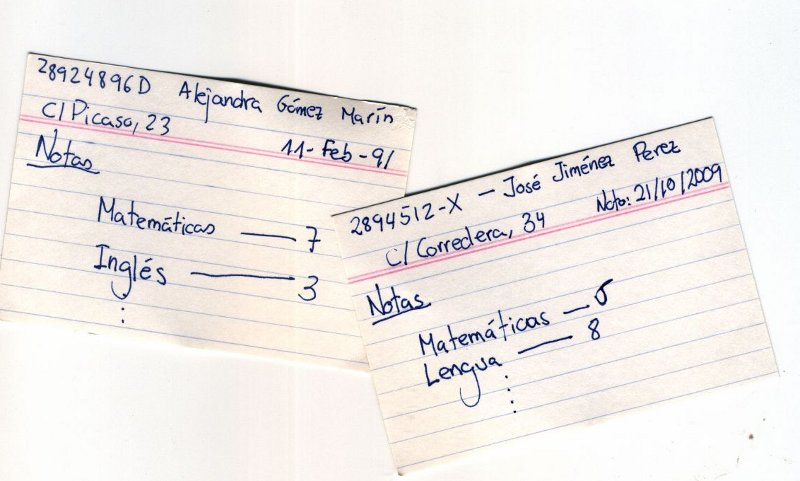 28924896D Alejandra Gómez Marín
C/ Picaso, 23
11-Feb-91
Notas
Matemáticas — 7
Inglés — 3
⋮
2894512-X — José Jiménez Perez
C/ Corredera, 34
21/10/2009
Notas
Matemáticas —
Lengua — 8
⋮